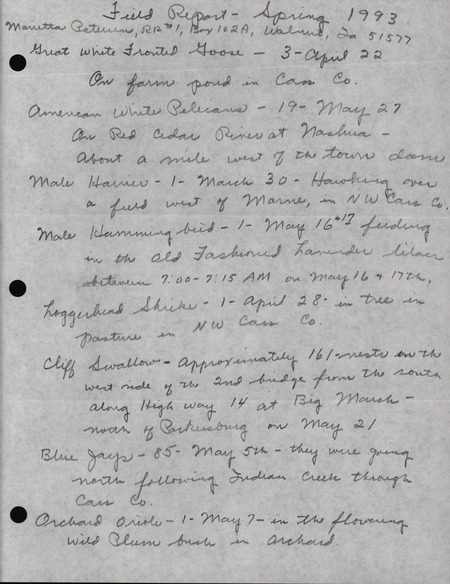 Field Report - Spring 1993
Marietta Petersen, RR#1, Box 102A, Walnut, Ia 51577
Great White Fronted Goose - 3 - April 22
On farm pond in Cass Co.
American White Pelicans - 19 - May 27
On Red Cedar River at Nashua -
About a mile west of the town dam
Male Harrier - 1 - March 30 - Hawking over
a field west of Marne, in NW Cass Co.
Male Hummingbird - 1 - May 16+17 feeding
in the Old Fashioned Lavender lilacs
between 7:00-7:15 AM on May 16 & 17th.
Loggerhead Shrike - 1 - April 28 - in tree in
pasture in NW Cass Co.
Cliff Swallow - Approximately 161 - nests on the
west side of the 2nd bridge from the south
along High way 14 at Big Marsh -
north of Parkersburg on May 21
Blue Jays - 85 - May 5th - they were going
north following Indian Creek through
Cass Co.
Orchard Oriole - 1 - May 7 - in the flowering
wild Plum bush in orchard